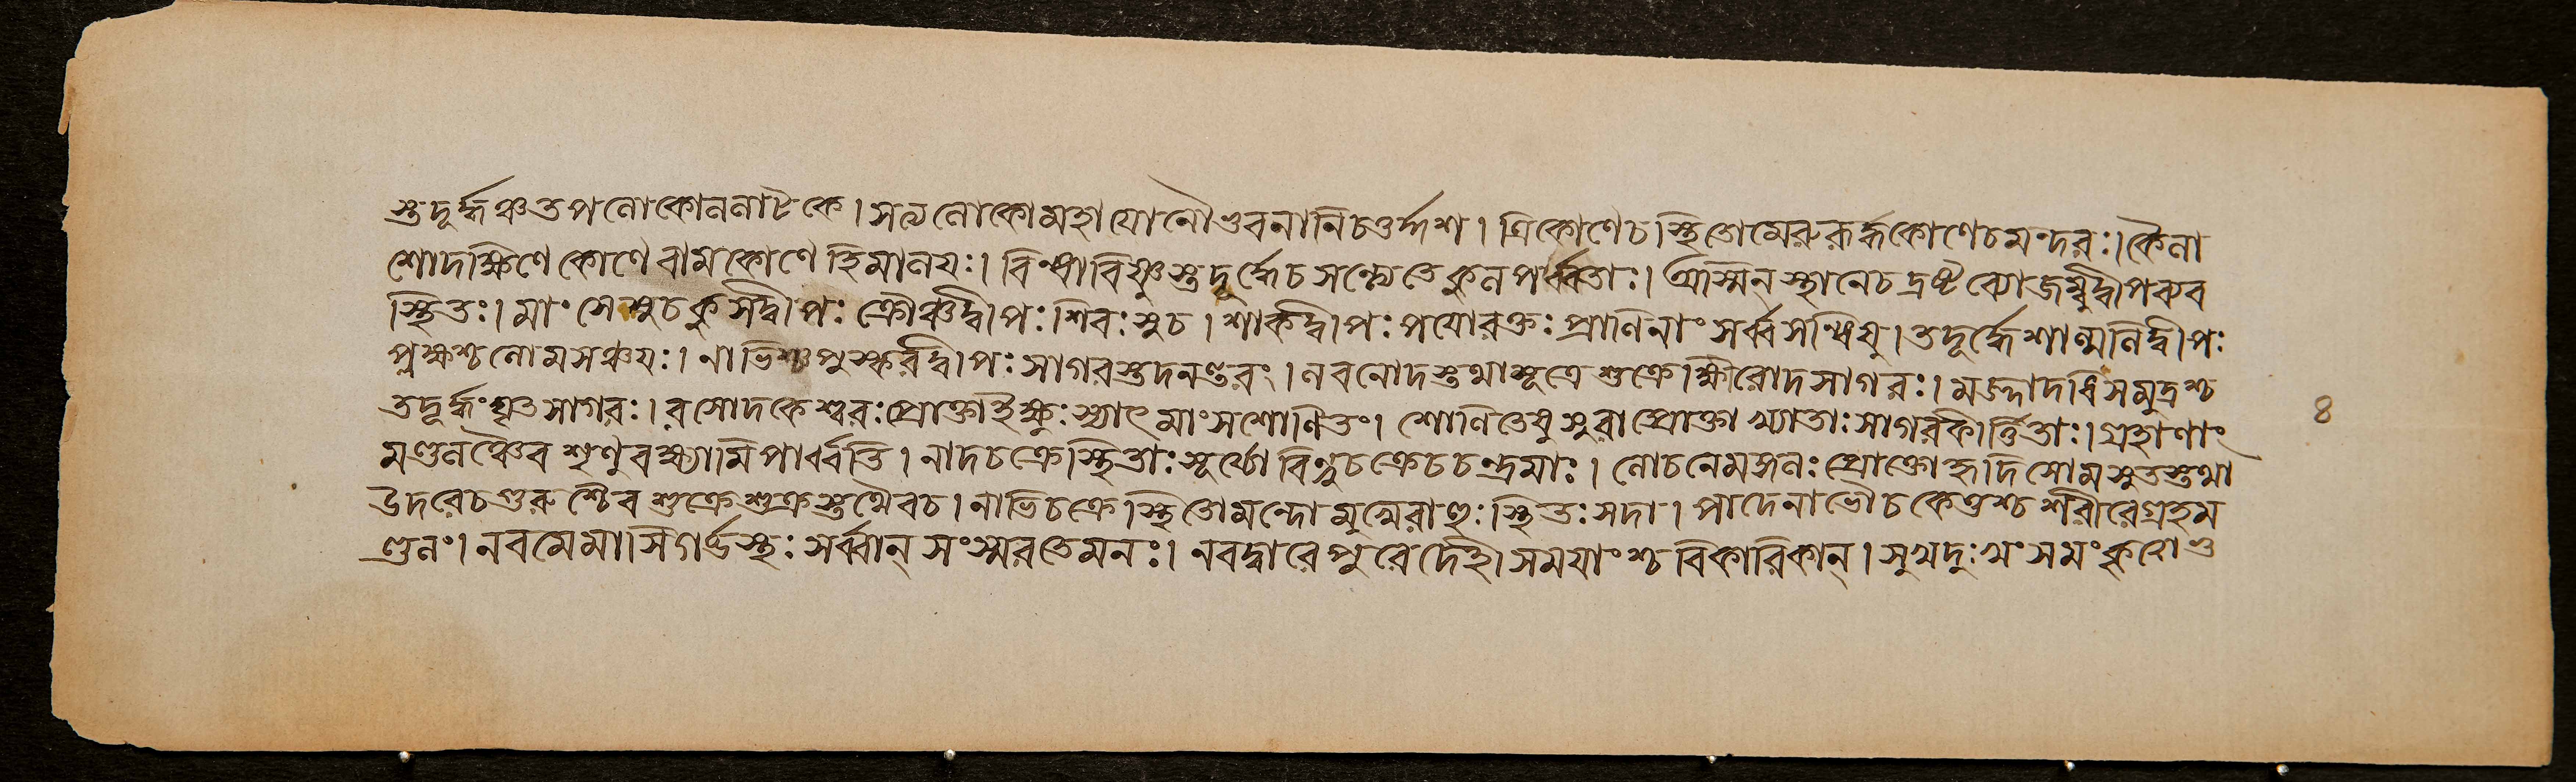 স্তদূর্দ্ধঞ্চতপলোকোললাটকে। সত্যলোকোমহাযোনৌভুবনানিচতুর্দ্দশ। ত্রিকোণেচস্থিতোমেরুরূর্দ্ধকোণেচমন্দরঃ। কৈলা
শোদক্ষিণে কোণে বামকোণে হিমালয়ঃ। বিন্ধ্যাবিষ্ণুস্তদূর্দ্ধেচ সপ্তৈতে কুলপর্ব্বতাঃ। অস্মিন্ স্থানেচ দ্রষ্টব্যোজম্বুদ্বীপব্যব
স্থিতঃ। মাংসেষুচকুসদ্বীপঃ ক্রৌঞ্চদ্বীপঃ শিবঃসুচ। শাকদ্বীপঃ পয়োরক্তঃ প্রাণিনাং সর্ব্বসন্ধিষু। তদূর্দ্ধেশাল্মলিদ্বীপঃ
প্লক্ষশ্চলোমসঞ্চয়ঃ। নাভিশ্চপুস্করদ্বীপঃ সাগরস্তদনন্তরং। লবলোদস্তথামূত্রে শুক্রেক্ষীরোদসাগরঃ। মজ্জাদধিসমুদ্রশ্চ
তদূর্দ্ধংঘৃতসাগরঃ। বসোদকেশ্বরঃপ্রোক্তাইক্ষুঃস্যাৎ মাংসশোণিতং। শোণিতেষুসুরাপ্রোক্তা খ্যাতাঃসাগরকীর্ত্তিতাঃ। গ্রহাণাং
মণ্ডলঞ্চৈব শৃণুবক্ষ্যামি পার্ব্বতি। নাদচক্রেস্থিতাঃ সূর্য্যো বিন্দুচক্রেচচন্দ্রমাঃ। লোচনেমঙ্গলঃ প্রোক্তোহৃদিসোমসুতস্তথা
উদরেচগুরুশ্চৈব শুক্রেশুক্রস্তথৈবচ। নাভিচক্রেস্থিতোমন্দো মুখেরাহুঃ স্থিতঃ সদা। পাদেনাভৌচকেতুশ্চ শরীরেগ্রহম
ণ্ডলং। নবমেমাসিগর্ভস্থঃ সর্ব্বান্ সংস্মরতেমনঃ। নবদ্বারেপুরেদেহীসময়াংশ্চ বিকারিকান্। সুখদুঃখংসমংকুরোতু
৪